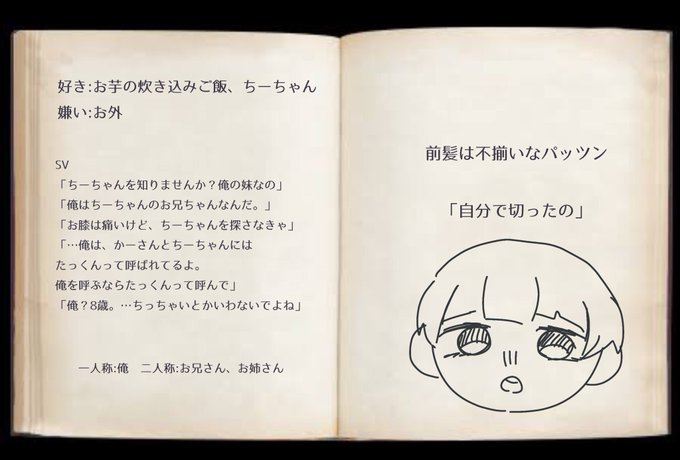 好き:お芋の炊き込みご飯、ちーちゃん
嫌い:お外
SV
「ちーちゃんを知りませんか？俺の妹なの」
「俺はちーちゃんのお兄ちゃんなんだ。」
「お膝は痛いけど、ちーちゃんを探さなきゃ」
「…俺は、かーさんとちーちゃんには
たっくんって呼ばれてるよ。
俺を呼ぶならたっくんって呼んで」
「俺？8歳。…ちっちゃいとかいわないでよね」
一人称:俺　二人称:お兄さん、お姉さん
前髪は不揃いなパッツン
「自分で切ったの」